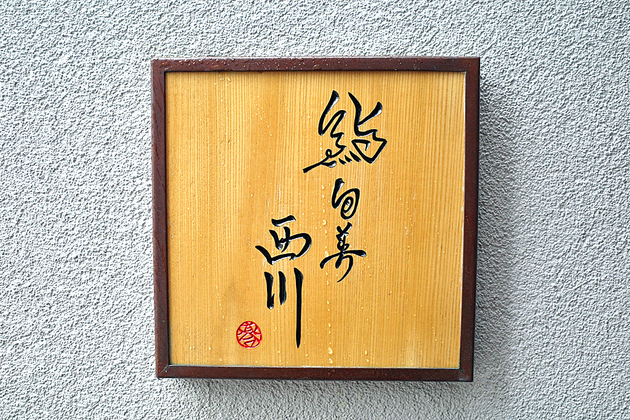 鮨旬美
西川